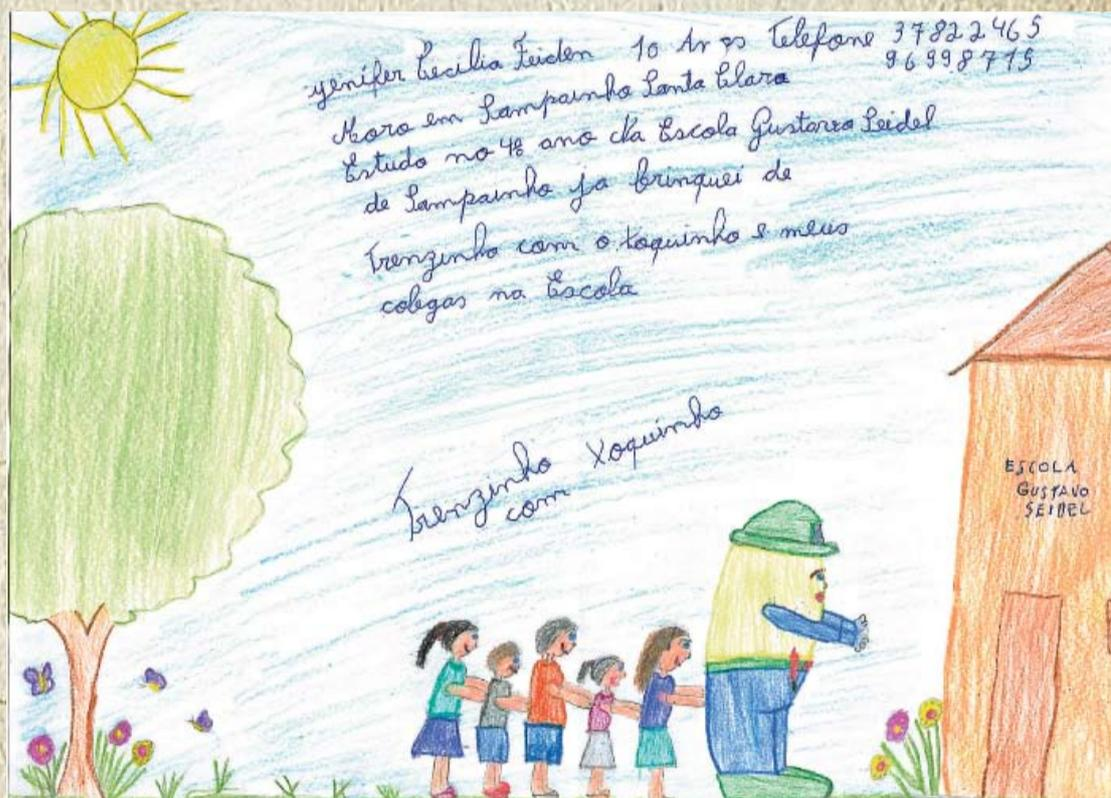 Jenifer Cecilia Feiden 10 Anos Telefone 37822465
96998715
Moro em Sampainho Santa Clara
Estudo no 4º ano da Escola Gustavo Seidel
de Sampainho ja brinquei de
Trenzinho com o Xoquinho e meus
colegas na Escola
Trenzinho Xoquinho
com
ESCOLA
GUSTAVO
SEIDEL